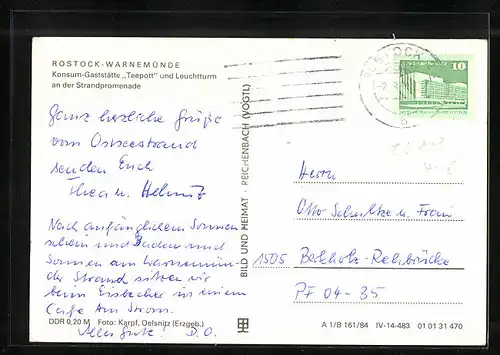 ROSTOCK-WARNEMÜNDE
Konsum-Gaststätte „Teepott" und Leuchtturm
an der Strandpromenade
Ganz herzliche Grüße
vom Ostseestrand
senden Euch
Thea u. Helmut
Nach anfänglichem Sonnen
schein und Baden und
Sonnen am Warnemün-
der Strand sitzen wir
beim Eisbecher in einem
Cafe Am Strom.
Alles Gute! D. O.
DDR 0,20 M Foto: Karpf, Oelsnitz (Erzgeb.)
BILD UND HEIMAT · REICHENBACH (VOGTL)
ROSTOCK
10
Herrn
Otto Schultze u. Frau
1505 Bergholz-Rehbrücke
PF 04-35
A 1/B 161/84 IV-14-483 01 01 31 470